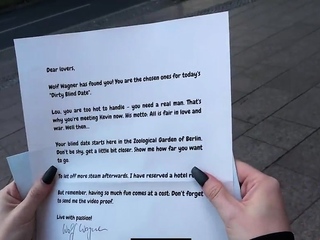 Dear lovers,
Wolf Wagner has found you! You are the chosen ones for today's
"Dirty Blind Date".
Lou, you are too hot to handle - you need a real man. That's
why you're meeting Kevin now. His motto: All is fair in love and
war. Well then...
Your blind date starts here in the Zoological Garden of Berlin.
Don't be shy, get a little bit closer. Show me how far you want
to go.
To let off more steam afterwards, I have reserved a hotel
But remember, having so much fun comes at a cost: Don't forget
to send me the video proof.
Live with passion!
Wolf Wagner